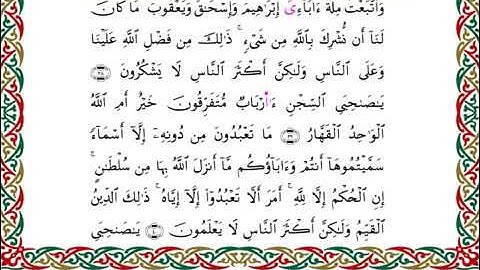 وَٱتَّبَعْتُ مِلَّةَ ءَابَآءِىٓ إِبْرَٰهِيمَ وَإِسْحَٰقَ وَيَعْقُوبَ مَا كَانَ
لَنَآ أَن نُّشْرِكَ بِٱللَّهِ مِن شَىْءٍ ۚ ذَٰلِكَ مِن فَضْلِ ٱللَّهِ عَلَيْنَا
وَعَلَى ٱلنَّاسِ وَلَٰكِنَّ أَكْثَرَ ٱلنَّاسِ لَا يَشْكُرُونَ ٣٨
يَٰصَىٰحِبَىِ ٱلسِّجْنِ ءَأَرْبَابٌ مُّتَفَرِّقُونَ خَيْرٌ أَمِ ٱللَّهُ
ٱلْوَٰحِدُ ٱلْقَهَّارُ ٣٩ مَا تَعْبُدُونَ مِن دُونِهِۦٓ إِلَّآ أَسْمَآءً
سَمَّيْتُمُوهَآ أَنتُمْ وَءَابَآؤُكُم مَّآ أَنزَلَ ٱللَّهُ بِهَا مِن سُلْطَٰنٍ ۚ
إِنِ ٱلْحُكْمُ إِلَّا لِلَّهِ ۚ أَمَرَ أَلَّا تَعْبُدُوٓا۟ إِلَّآ إِيَّاهُ ۚ ذَٰلِكَ ٱلدِّينُ
ٱلْقَيِّمُ وَلَٰكِنَّ أَكْثَرَ ٱلنَّاسِ لَا يَعْلَمُونَ ٤٠ يَٰصَىٰحِبَىِ